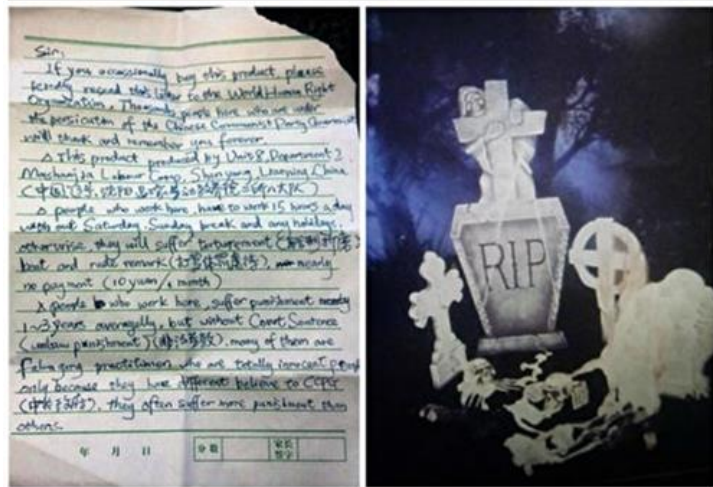 Sir:
If you occassionally buy this product, please
kindly resend this letter to the World Human Right
Organization. Thousands people here who are under
the persicution of the Chinese Communist Party Government
will thank and remember you forever.
This product produced by Unit 8, Department 2,
Masanjia Labour Camp, Shenyang, Liaoning, China
(中国, 辽宁, 沈阳, 马三家劳动教养院二所八大队)
people who work here, have to work 15 hours a day
with out Saturday, Sunday break and any holidays,
otherwise, they will suffer torturement
beat and rude remark nearly
no payment (10 yuan/1 month)
people who work here, suffer punishment nearly
1~3 years averagelly, but without Court Sentence
(unlaw punishment) (非法劳教), many of them are
Falun gong practitioner who are totally innocent people
only because they have different believe to CCPG
they often suffer more punishment than
others.
年 月 日 分数 家长签字
RIP